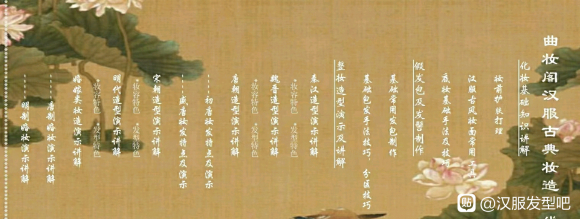 曲妆阁汉服古典妆造
化妆基础知识讲解
妆前护肤打理
汉服古妆面常用
底妆基础手法及技巧
假发包及发髻制作
基础常用发包制作
基础包发手法技巧 分区技巧
整妆造型演示及讲解
秦汉造型演示讲解
魏晋造型演示讲解
*妆容特色 *发型特色
唐朝造型演示讲解
初唐妆发特点及演示
盛唐妆发特点及演示
宋朝造型演示讲解
*妆容特色 *发型特色
明代造型演示讲解
*妆容特色 *发型特色
婚嫁类妆造演示讲解
唐制婚妆演示讲解
明制婚妆演示讲解
贴 @汉服发型吧